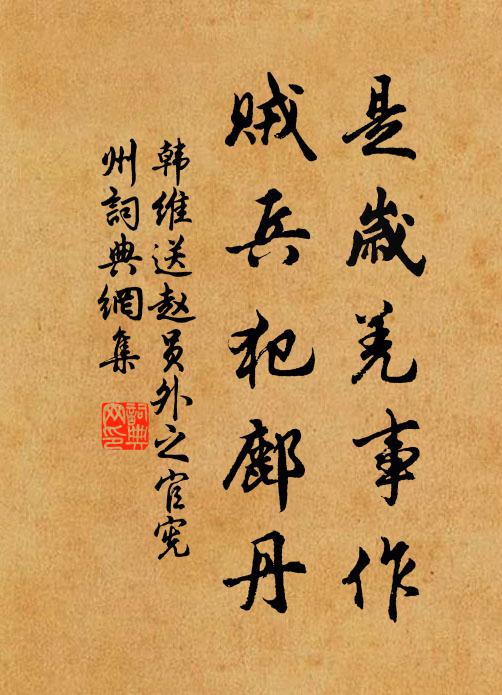 是歲羌事作
賊兵犯鄜丹
韩维送赵员外之官宪
州詞典網集
詞典
网印